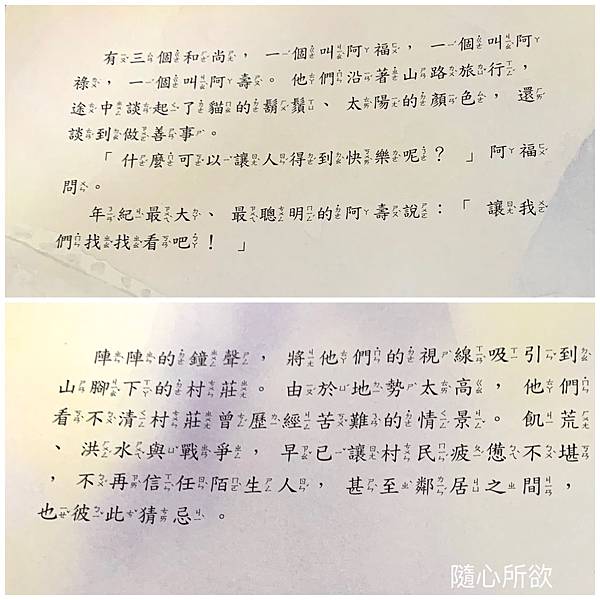 有三個和尚，一個叫阿福，一個叫阿
祿，一個叫阿壽。他們沿著山路旅行，
途中談起了貓的鬍鬚、太陽的顏色，還
談到做善事。
「什麼可以讓人得到快樂呢？」阿福
問。
年紀最大、最聰明的阿壽說：「讓我
們找找看吧！」
陣陣的鐘聲，將他們的視線吸引到
山腳下的村莊。由於地勢太高，他們
看不清村莊曾歷經苦難的情景。飢荒
、洪水與戰爭，早已讓村民疲憊不堪
，不再信任陌生人，甚至鄰居之間，
也彼此猜忌。
隨心所欲